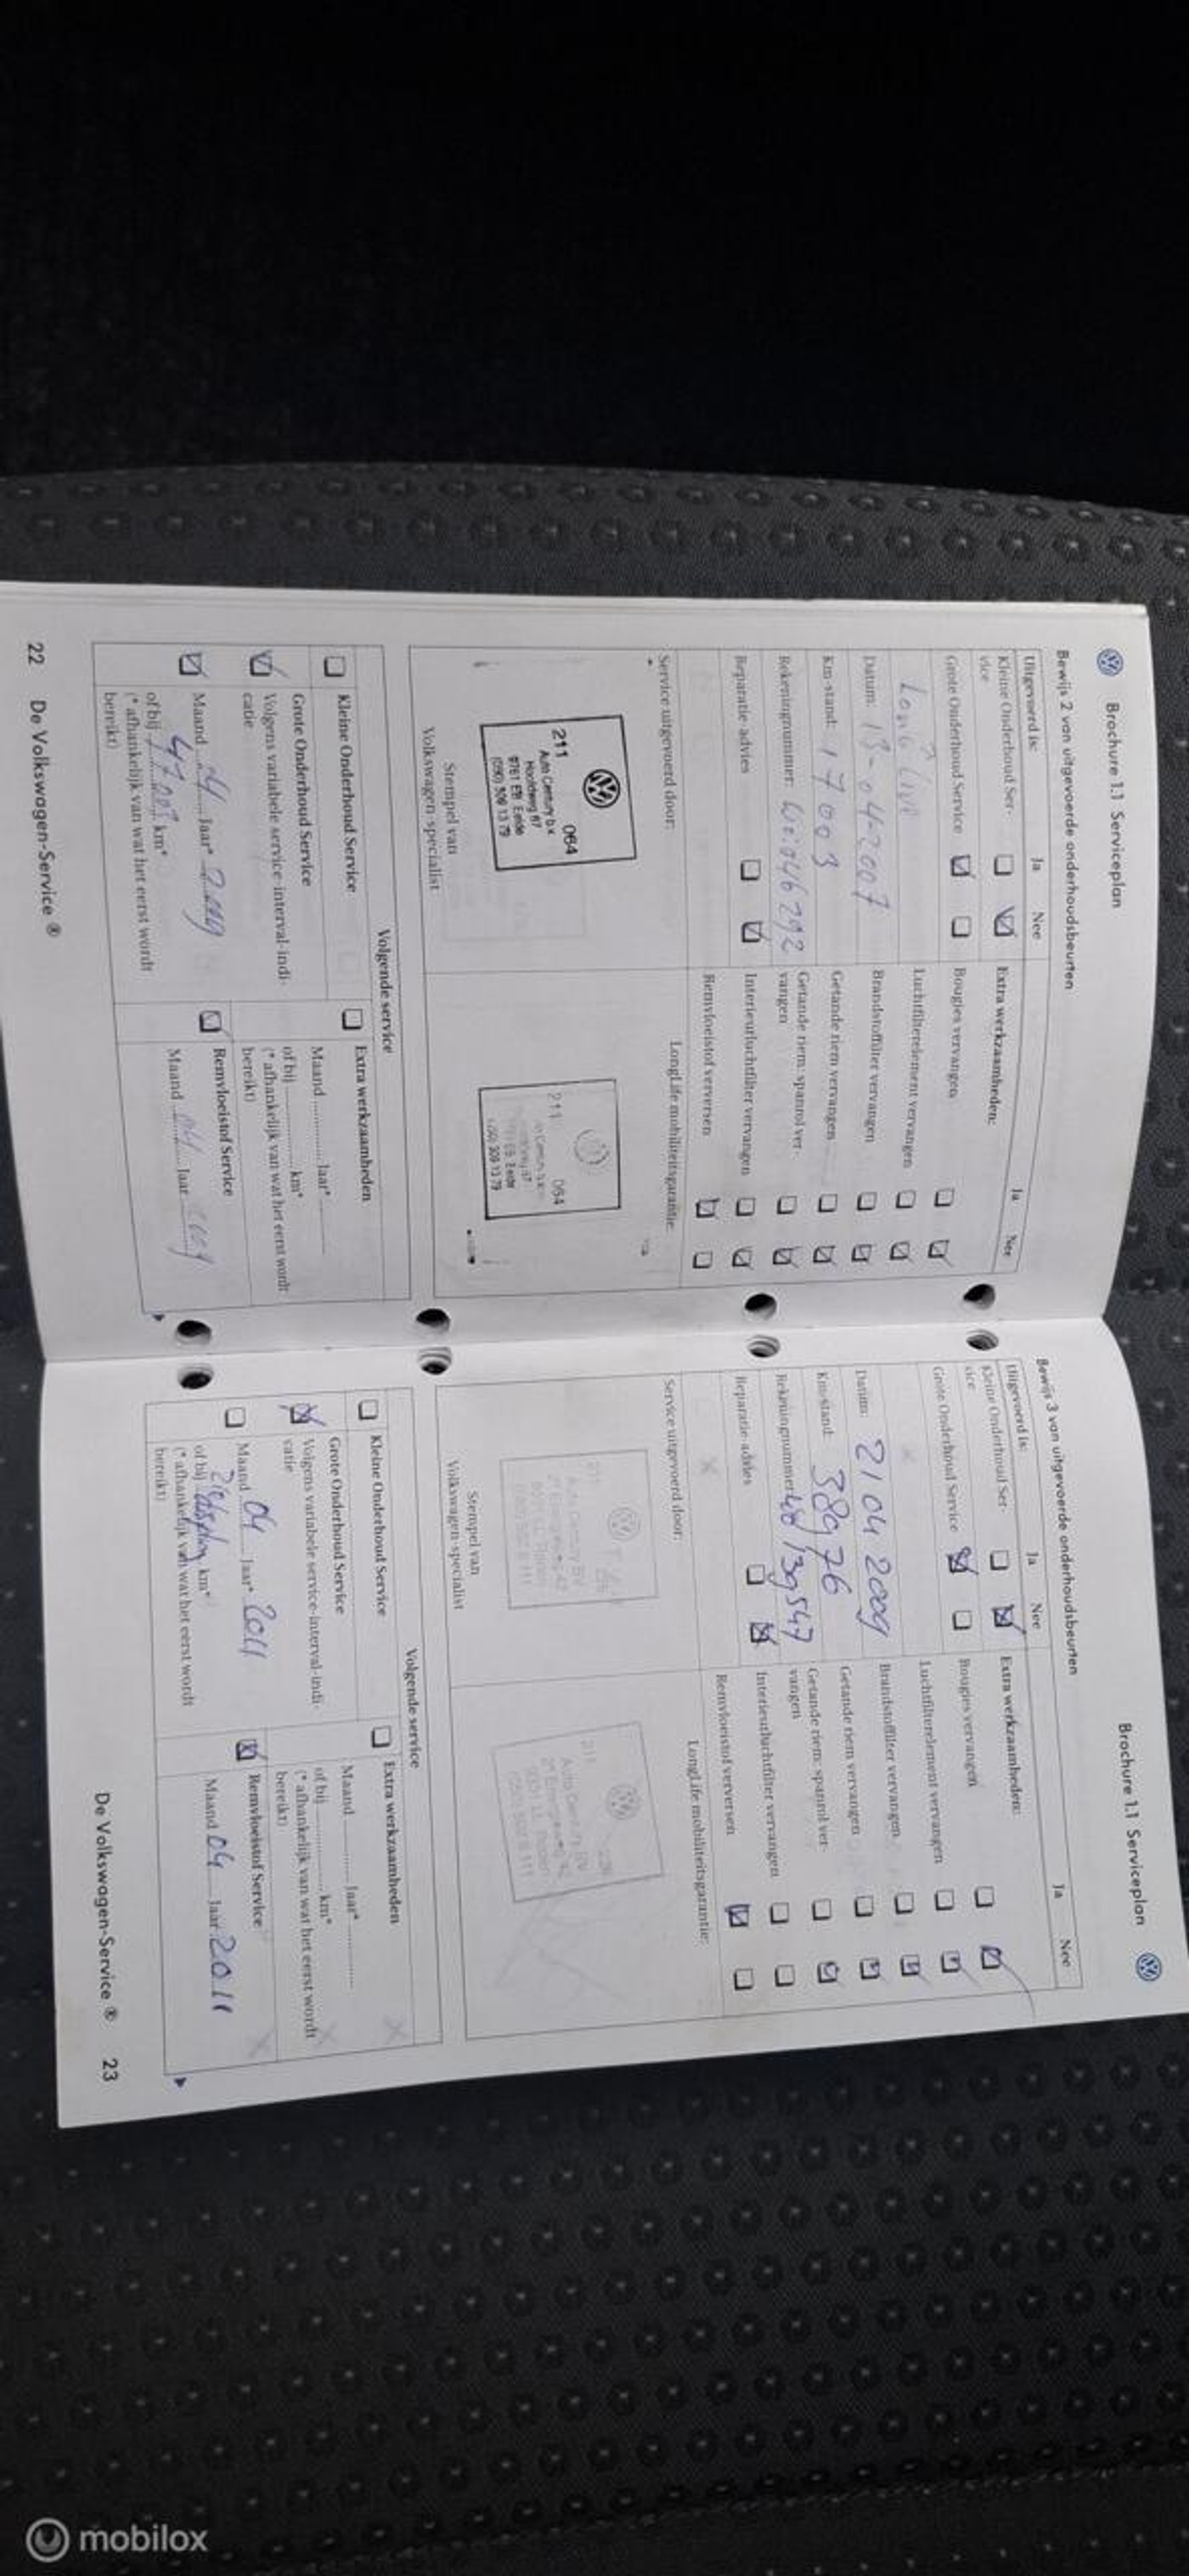 Brochure 1.1 Serviceplan
Bewijs 2 van uitgevoerde onderhoudsbeurten
Uitgevoerd is: Ja Nee
Kleine Onderhoud Ser-
vice
Grote Onderhoud Service
Long Live
Datum: 13-04-2007
Km-stand: 17003
Rekeningnummer:
Reparatie-advies
Extra werkzaamheden: Ja Nee
Bougies vervangen
Luchtfilterelement vervangen
Brandstoffilter vervangen
Getande riem vervangen
Getande riem: spanrol ver-
vangen
Interieurluchtfilter vervangen
Remvloeistof verversen
Service uitgevoerd door:
211 064
Auto Century b.v.
Hooidweg 87
9761 EB Eelde
(050) 309 13 79
Stempel van
Volkswagen-specialist
LongLife mobiliteitsgarantie:
211 064
Eelde
(050) 309 13 79
Volgende service
Kleine Onderhoud Service
Grote Onderhoud Service
Volgens variabele service-interval-indi-
catie
Maand 04 Jaar* 2009
of bij 47003 km*
(* afhankelijk van wat het eerst wordt
bereikt)
Extra werkzaamheden
Maand Jaar*
of bij km*
(* afhankelijk van wat het eerst wordt
bereikt)
Remvloeistof Service
Maand 04 Jaar 2009
22 De Volkswagen-Service ®
Brochure 1.1 Serviceplan
Bewijs 3 van uitgevoerde onderhoudsbeurten
Uitgevoerd is: Ja Nee
Kleine Onderhoud Ser-
vice
Grote Onderhoud Service
Datum: 21 04 2009
Km-stand: 38976
Rekeningnummer:
Reparatie-advies
Extra werkzaamheden: Ja Nee
Bougies vervangen
Luchtfilterelement vervangen
Brandstoffilter vervangen
Getande riem vervangen
Getande riem: spanrol ver-
vangen
Interieurluchtfilter vervangen
Remvloeistof verversen
Service uitgevoerd door:
211
Auto Century BV
Stempel van
Volkswagen-specialist
LongLife mobiliteitsgarantie:
Auto Century BV
Volgende service
Kleine Onderhoud Service
Grote Onderhoud Service
Volgens variabele service-interval-indi-
catie
Maand 04 Jaar* 2011
of bij km*
(* afhankelijk van wat het eerst wordt
bereikt)
Extra werkzaamheden
Maand Jaar*
of bij km*
(* afhankelijk van wat het eerst wordt
bereikt)
Remvloeistof Service
Maand 04 Jaar 2011
De Volkswagen-Service ® 23
mobilox